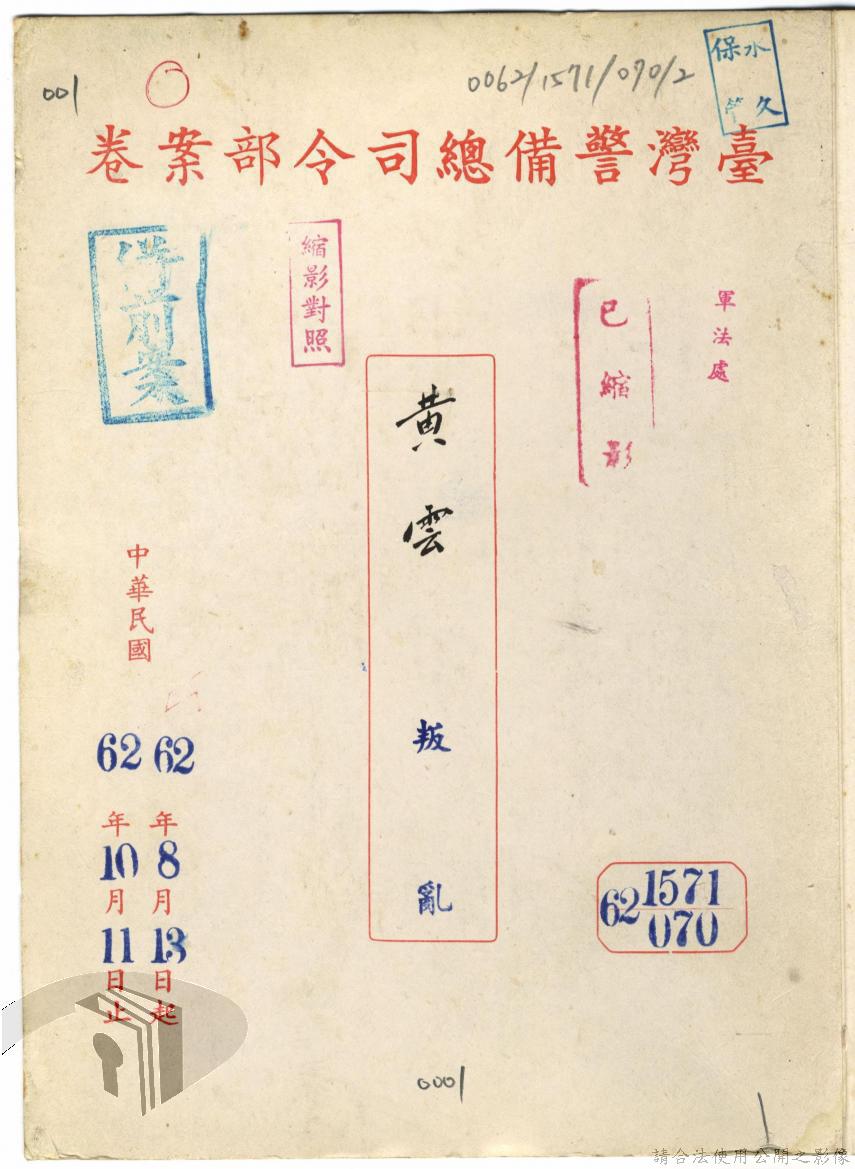 001
0062/1571/070/2
永久保管
臺灣警備總司令部案卷
軍法處
已縮影
縮影對照
併前案
黃雲 叛亂
中華民國
62年8月13日起
62年10月11日止
62 1571
070
0001
請合法使用公開之影像